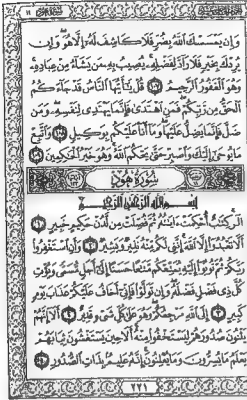 وَإِن يَمْسَسْكَ ٱللَّهُ بِضُرٍّ فَلَا كَاشِفَ لَهُۥٓ إِلَّا هُوَ ۖ وَإِن
يُرِدْكَ بِخَيْرٍ فَلَا رَآدَّ لِفَضْلِهِۦ ۚ يُصِيبُ بِهِۦ مَن يَشَآءُ مِنْ عِبَادِهِۦ ۚ
وَهُوَ ٱلْغَفُورُ ٱلرَّحِيمُ ﴿١٠٧﴾ قُلْ يَٰٓأَيُّهَا ٱلنَّاسُ قَدْ جَآءَكُمُ
ٱلْحَقُّ مِن رَّبِّكُمْ ۖ فَمَنِ ٱهْتَدَىٰ فَإِنَّمَا يَهْتَدِى لِنَفْسِهِۦ ۖ وَمَن
ضَلَّ فَإِنَّمَا يَضِلُّ عَلَيْهَا ۖ وَمَآ أَنَا۠ عَلَيْكُم بِوَكِيلٍ ﴿١٠٨﴾ وَٱتَّبِعْ
مَا يُوحَىٰٓ إِلَيْكَ وَٱصْبِرْ حَتَّىٰ يَحْكُمَ ٱللَّهُ ۚ وَهُوَ خَيْرُ ٱلْحَٰكِمِينَ ﴿١٠٩﴾
سُورَةُ هُودٍ
بِسْمِ ٱللَّهِ ٱلرَّحْمَٰنِ ٱلرَّحِيمِ
الٓر ۚ كِتَٰبٌ أُحْكِمَتْ ءَايَٰتُهُۥ ثُمَّ فُصِّلَتْ مِن لَّدُنْ حَكِيمٍ خَبِيرٍ ﴿١﴾
أَلَّا تَعْبُدُوٓا۟ إِلَّا ٱللَّهَ ۚ إِنَّنِى لَكُم مِّنْهُ نَذِيرٌ وَبَشِيرٌ ﴿٢﴾ وَأَنِ ٱسْتَغْفِرُوا۟
رَبَّكُمْ ثُمَّ تُوبُوٓا۟ إِلَيْهِ يُمَتِّعْكُم مَّتَٰعًا حَسَنًا إِلَىٰٓ أَجَلٍ مُّسَمًّى وَيُؤْتِ
كُلَّ ذِى فَضْلٍ فَضْلَهُۥ ۖ وَإِن تَوَلَّوْا۟ فَإِنِّىٓ أَخَافُ عَلَيْكُمْ عَذَابَ يَوْمٍ
كَبِيرٍ ﴿٣﴾ إِلَى ٱللَّهِ مَرْجِعُكُمْ ۖ وَهُوَ عَلَىٰ كُلِّ شَىْءٍ قَدِيرٌ ﴿٤﴾ أَلَآ إِنَّهُمْ
يَثْنُونَ صُدُورَهُمْ لِيَسْتَخْفُوا۟ مِنْهُ ۚ أَلَا حِينَ يَسْتَغْشُونَ ثِيَابَهُمْ
يَعْلَمُ مَا يُسِرُّونَ وَمَا يُعْلِنُونَ ۚ إِنَّهُۥ عَلِيمٌۢ بِذَاتِ ٱلصُّدُورِ ﴿٥﴾
٢٢١